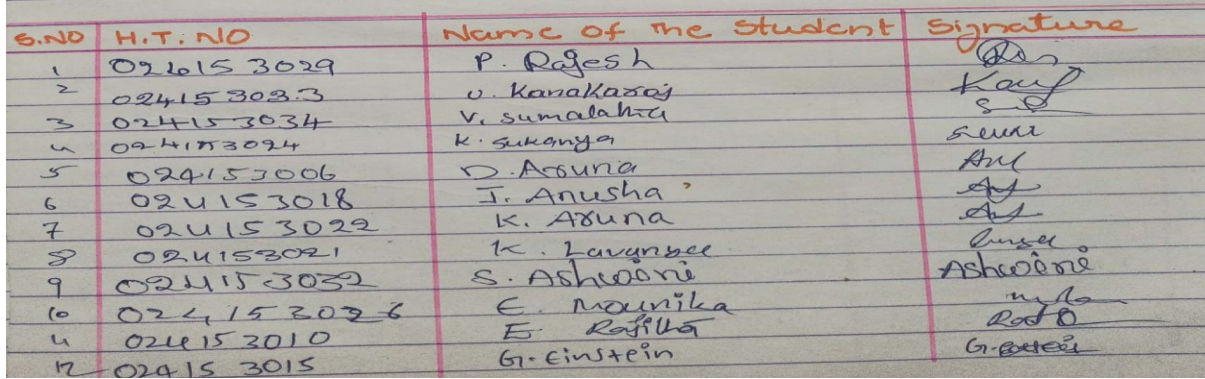 S.NO H.T. NO Name of the Student Signature
1 024153029 P. Rajesh
2 024153033 U. Kanakaraj
3 024153034 V. Sumalatha
4 024153024 K. Sukanya
5 024153006 D. Aruna
6 024153018 J. Anusha
7 024153022 K. Aruna
8 024153021 K.
9 024153032 S. Ashwini Ashwini
10 024153026 E. Mounika
11 024153010 E. Rajitha
12 024153015 G. Einstein